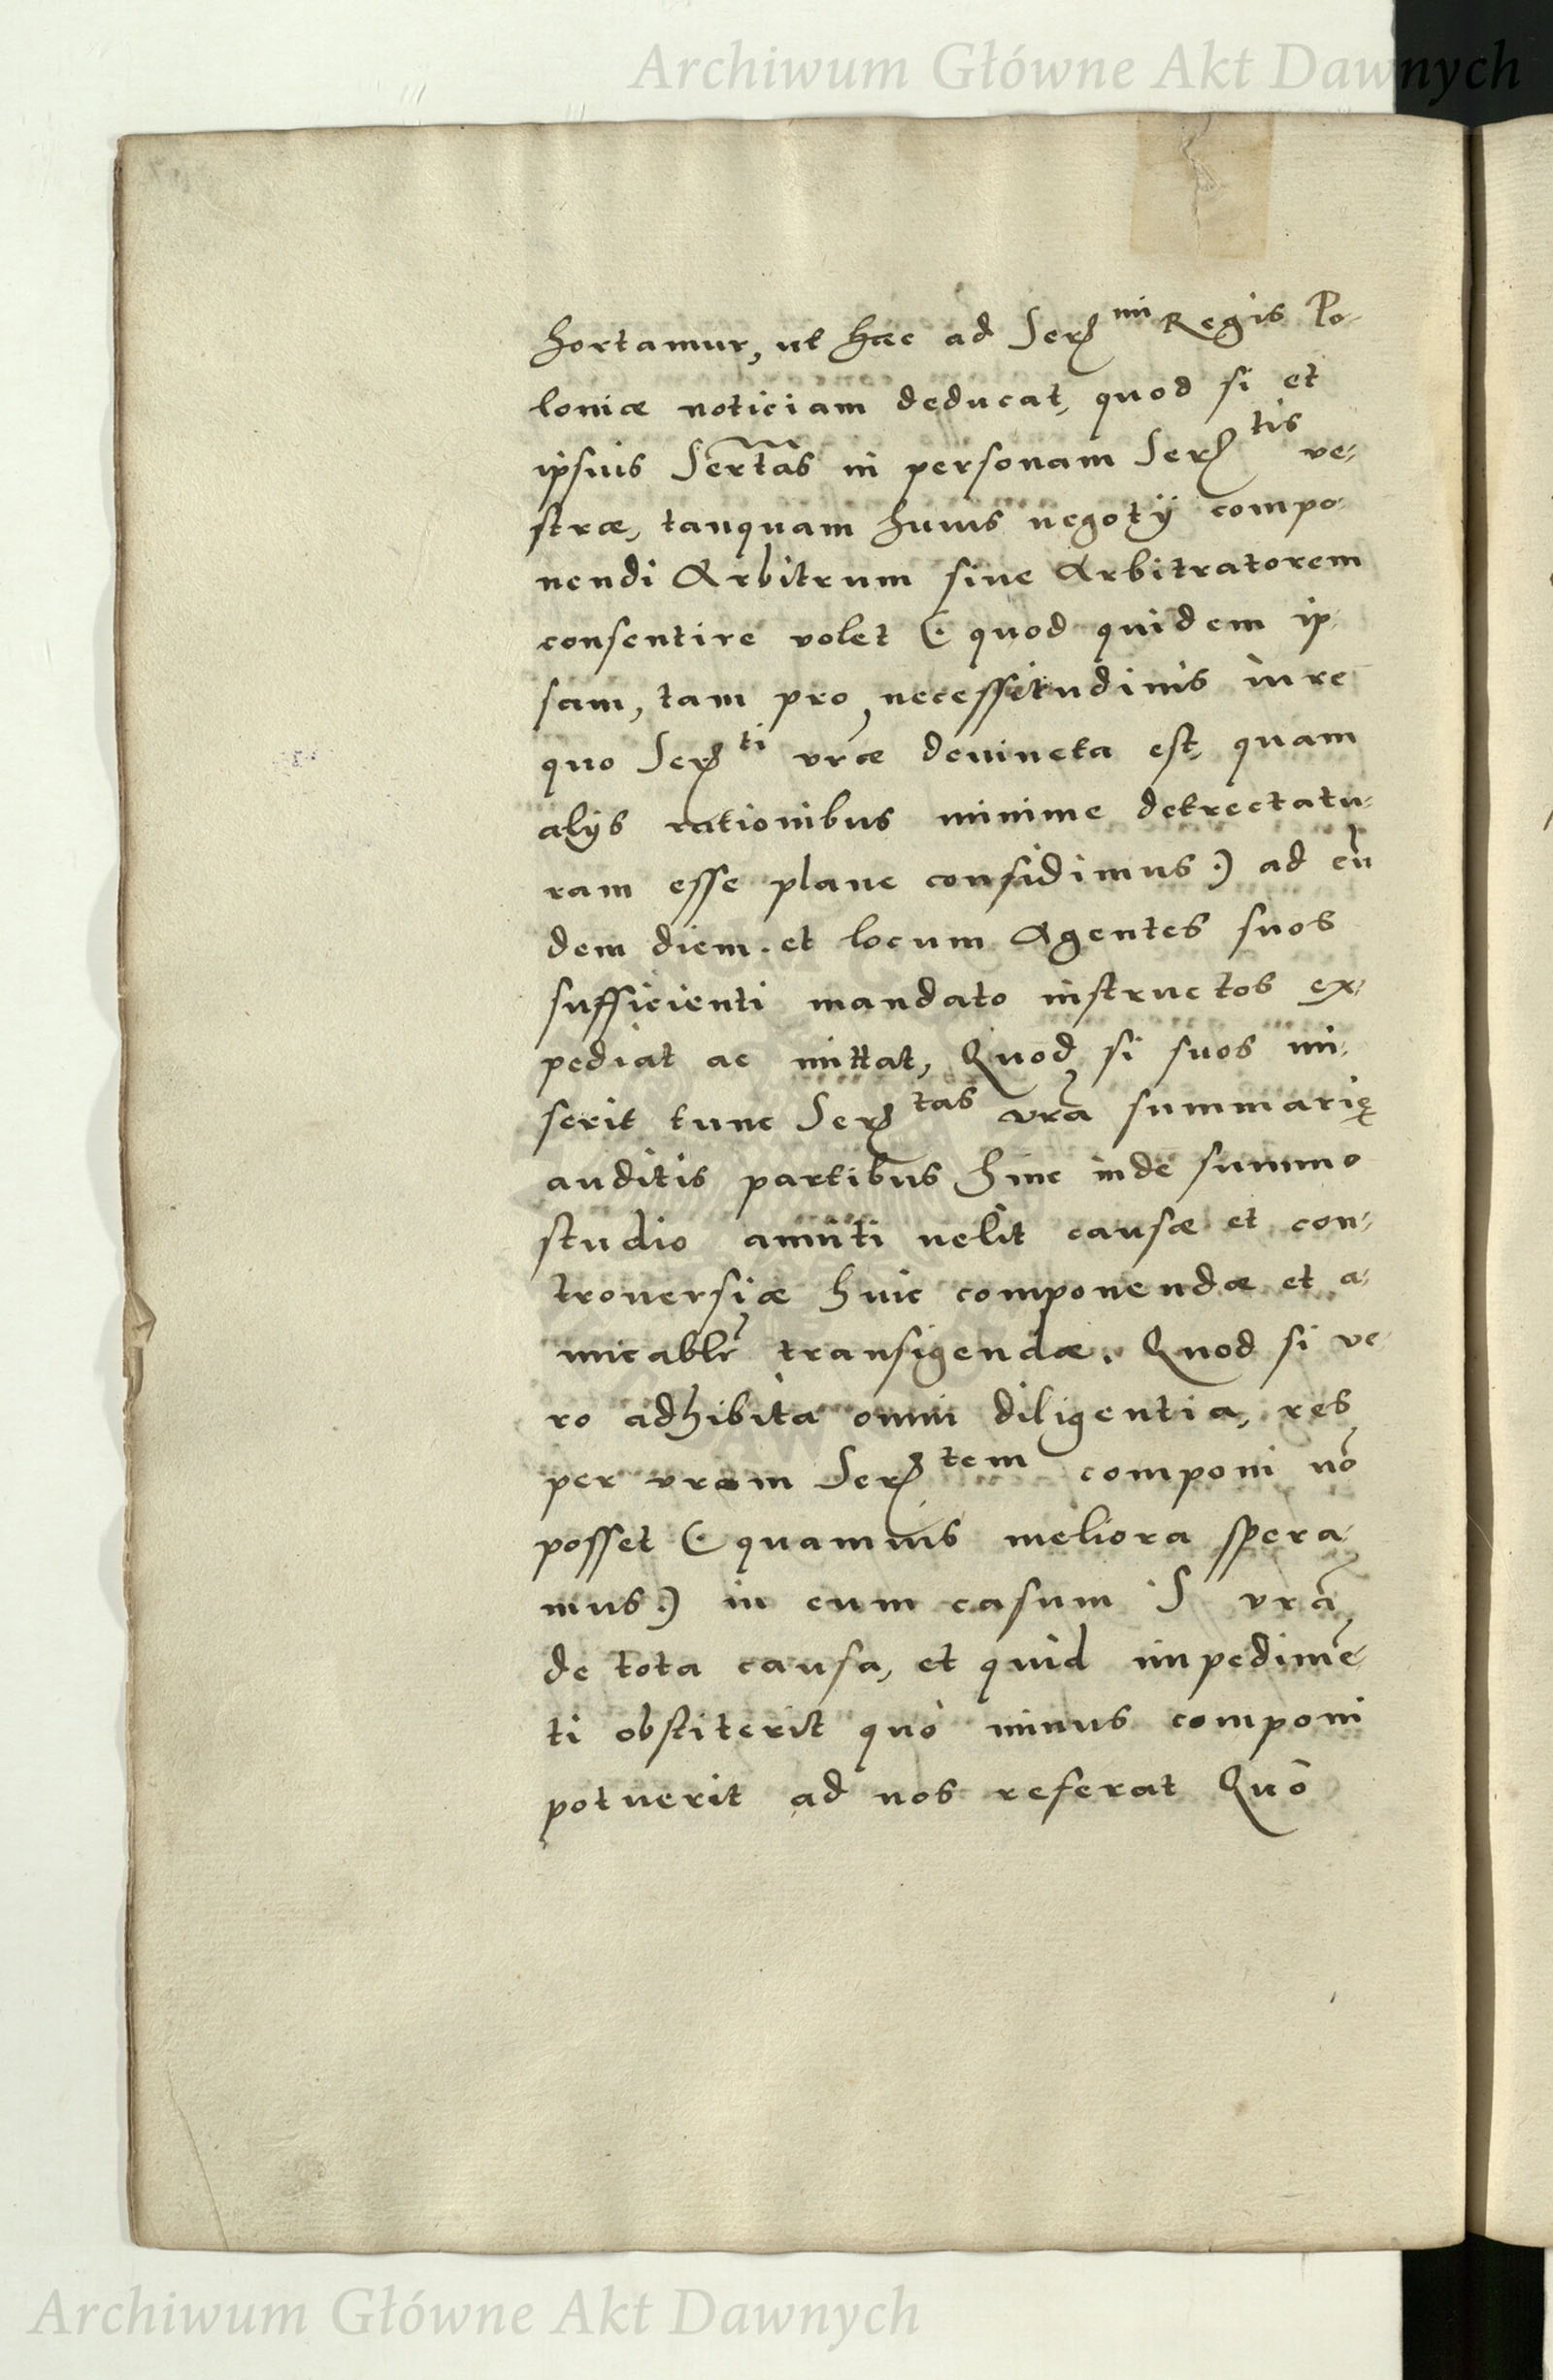 Archiwum Główne Akt Dawnych
hortamur, ut hæc ad Ser^mi Regis Po-
loniæ noticiam deducat, quod si et
ipsius Sertas in personam Ser^tis ve-
stræ, tanquam huius negotÿ compo-
nendi Arbitrum siue Arbitratorem
consentire volet (: quod quidem ip-
sam, tam pro necessitudinis iure
quo Ser^ti vræ deuincta est, quam
alÿs rationibus minime detrectatu-
ram esse plane confidimus :) ad eũ
dem diem et locum Agentes suos
sufficienti mandato instructos ex-
pediat ac mittat, Quod si suos mi-
serit tunc Ser^tas vrã summarię
auditis partibus hinc inde summo
studio anniti uelit causæ et con-
trouersiæ huic componendæ et a-
micablr transigendæ. Quod si ve-
ro adhibita omni diligentia, res
per vram Ser^tem componi nõ
posset (: quamuis meliora spera-
mus :) in eum casum S vrã
de tota causa, et quid impedimẽ-
ti obstiterit quò minus componi
potuerit ad nos referat Quò
Archiwum Główne Akt Dawnych